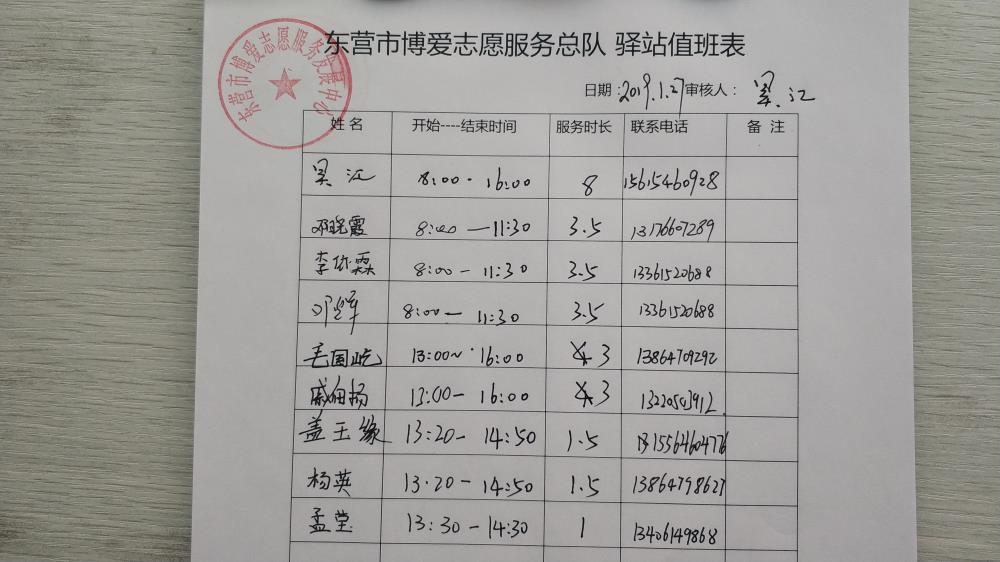 东营市博爱志愿服务总队 驿站值班表
东营市博爱志愿服务发展中心
日期:2019.1.27 审核人: 吴江
姓名 开始----结束时间 服务时长 联系电话 备 注
吴江 8:00-16:00 8 15615460928
邓晓霞 8:00—11:30 3.5 13176607289
李依霖 8:00-11:30 3.5 13361520688
8:00—11:30 3.5 13361520688
毛国屹 13:00~16:00 3 13864709292
戚伯扬 13:00-16:00 3
盖玉缘 13:20-14:50 1.5 15564604776
杨英 13.20-14:50 1.5 13864798627
孟莹 13:30-14:30 1 13406149868